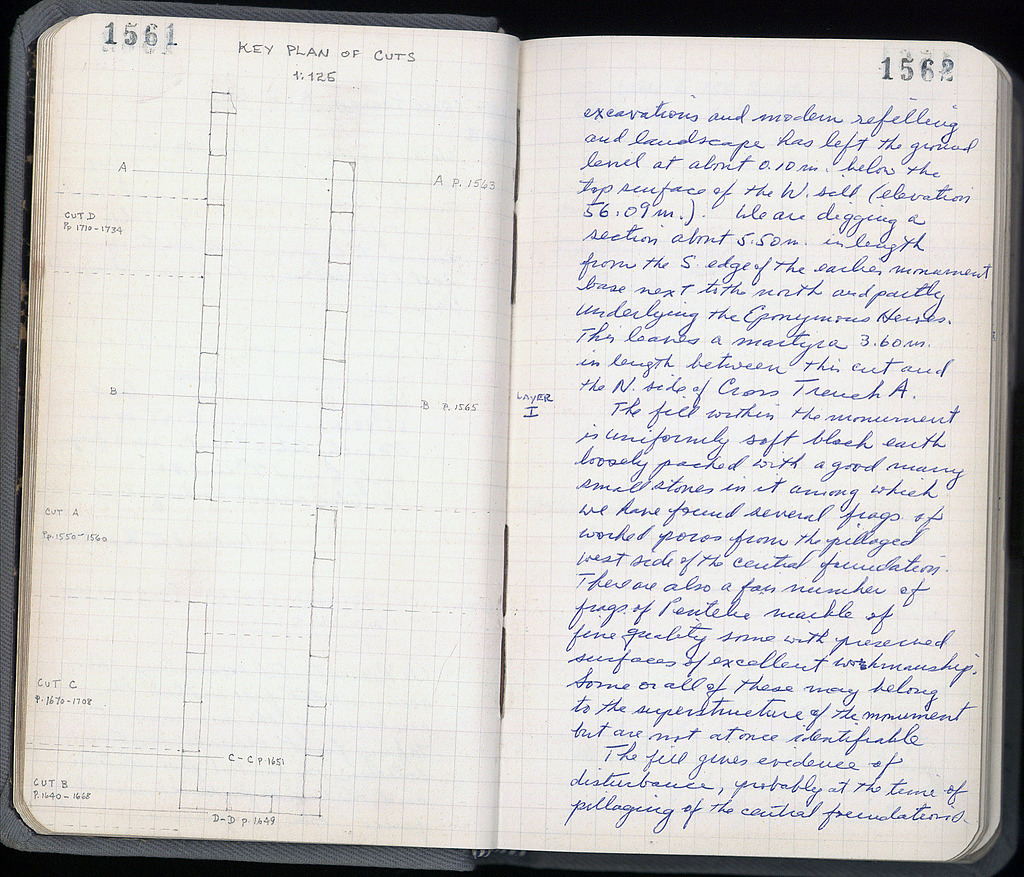 1561
KEY PLAN OF CUTS
1:125
A
A P. 1563
CUT D
Pp 1710-1734
B
B P. 1565
CUT A
Pp. 1550-1560
CUT C
P. 1670-1708
C-C P. 1651
CUT B
P. 1640-1668
D-D p. 1649
1562
excavations and modern refilling
and landscape has left the ground
level at about 0.10 m. below the
top surface of the W. sill (elevation
56.09 m.). We are digging a
section about 5.50 m. in length
from the S. edge of the earlier monument
base next to the north and partly
underlying the Eponymous Heroes.
This leaves a martyra 3.60 m.
in length between this cut and
the N. side of Cross Trench A.
LAYER
I
The fill within the monument
is uniformly soft black earth
loosely packed with a good many
small stones in it among which
we have found several frags. of
worked poros from the pillaged
west side of the central foundation.
There are also a fair number of
frags. of Pentelic marble of
fine quality some with preserved
surfaces of excellent workmanship.
Some or all of these may belong
to the superstructure of the monument
but are not at once identifiable
The fill gives evidence of
disturbance, probably at the time of
pillaging of the central foundations.